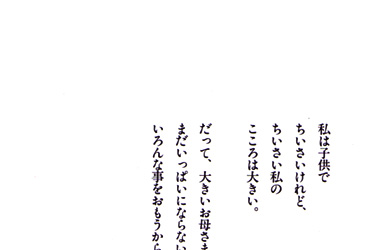 私は子供で
ちいさいけれど、
ちいさい私の
こころは大きい。
だって、大きいお母さま
まだいっぱいにならない
いろんな事をおもうから